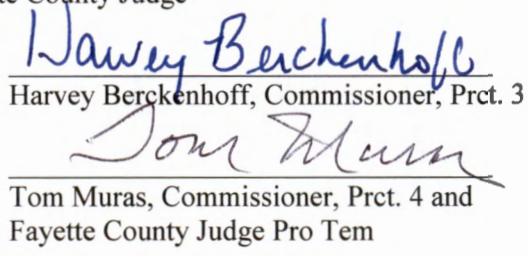 te County Judge
Harvey Berckenhoff
Harvey Berckenhoff, Commissioner, Prct. 3
Tom Muras
Tom Muras, Commissioner, Prct. 4 and
Fayette County Judge Pro Tem